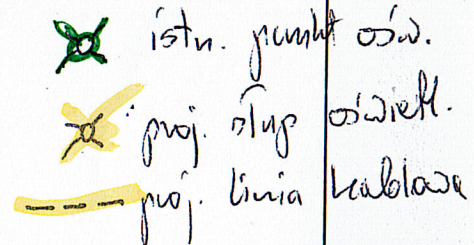 istn. punkt ośw.
proj. słup oświetl.
proj. linia kablowa